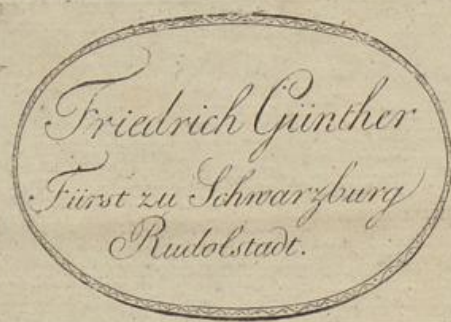 Friedrich Günther
Fürst zu Schwarzburg
Rudolstadt.